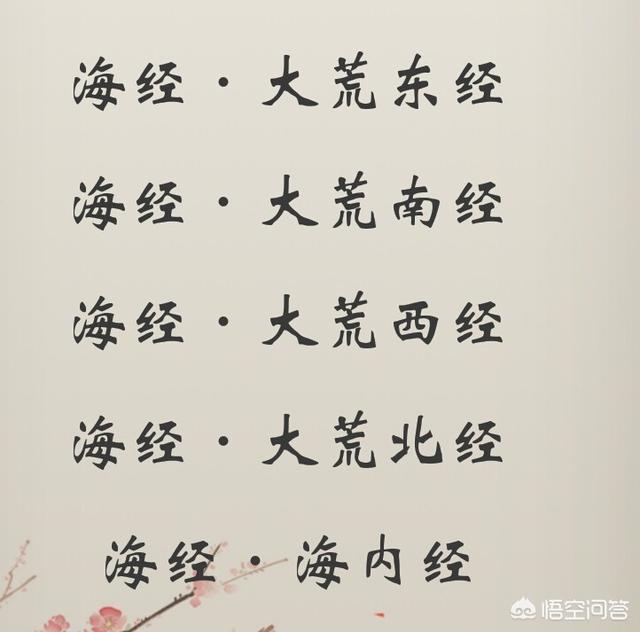 海经·大荒东经
海经·大荒南经
海经·大荒西经
海经·大荒北经
海经·海内经
悟空问答